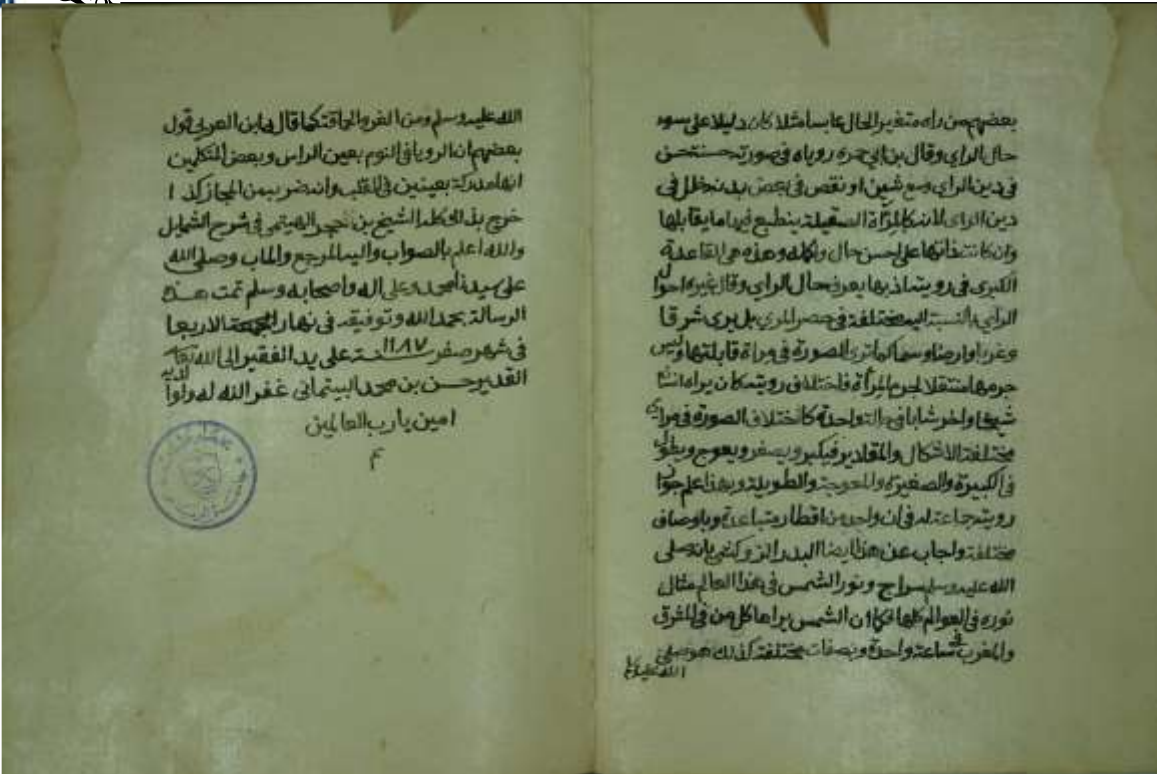 بعضهم من راه متغير الحال عابسا مثلا كان دليلا على سوء
حال الراي وقال بن ابي جمره روياه في صورة حسنة حسن
في دين الراي ومع شين او نقص في بعض بدنه خلل في
دين الراي لانه كالمرأة الصقيلة ينطبع فيها ما يقابلها
وان كانت ذاتها على احسن حال واكمله وهذه هي القاعدة
الكبرى في رويته اذ بها يعرف حال الراي وقال غيره احوال
الراي بالنسبة اليه مختلفة في حصر المري بل يرى شرقا
وغربا وارضا وسما كما ترى الصورة في مراة قابلتها وليس
جرمها منتقلا لجرم المرأة فاختلاف رويته كان يراه انسان
شيخا واخر شابا في حالة واحدة كاختلاف الصورة في مراي
مختلفة الاشكال والمقادير فيكبر ويصغر ويعوج ويطول
في الكبيرة والصغيرة والمعوجة والطويلة وبهذا علم جواز
رويته جماعة له في ان واحد من اقطار متباعدة وباوصاف
مختلفة واجاب عن هذا ايضا البدر الزركشي بانه صلى
الله عليه وسلم سراج ونور الشمس في هذا العالم مثال
نوره في العوالم كلها فكما ان الشمس يراها كل من في المشرق
والمغرب في ساعة واحدة وبصفات مختلفة كذلك هو صلى
الله عليه
الله عليه وسلم ومن الغريب كما قال ابن العربي قول
بعضهم ان الرويا في النوم بعين الراس وبعض المتكلمين
انها مدركة بعينين في القلب وانه ضرب من المجاز كذا
خرج بذلك كله الشيخ بن حجر الهيتمي في شرح الشمايل
والله اعلم بالصواب واليه المرجع والماب وصلى الله
على سيدنا محمد وعلى اله واصحابه وسلم تمت هذه
الرسالة بحمد الله وتوفيقه في نهار الاربعا
في شهر صفر سنة ١١٨٧ على يد الفقير الى الله تعالى
القدير حسن بن محمد البيتماني غفر الله له ولوالديه
امين يا رب العالمين
م